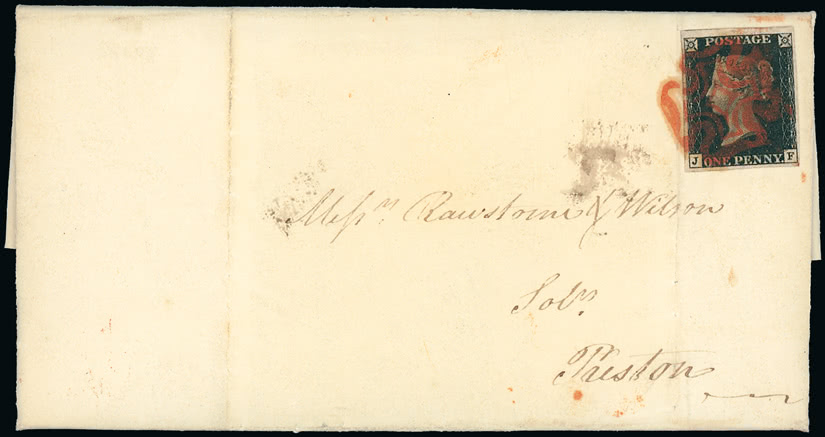 POSTAGE
J ONE PENNY F
Messrs Rawstorne & Wilson
Solrs
Preston